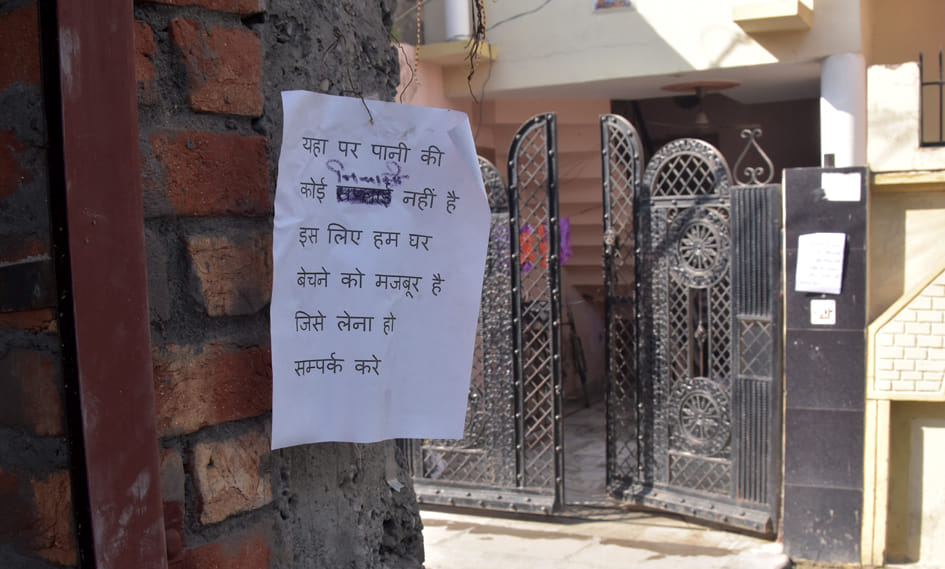 यहा पर पानी की
निकासी
कोई नहीं है
इस लिए हम घर
बेचने को मजबूर है
जिसे लेना हो
सम्पर्क करे